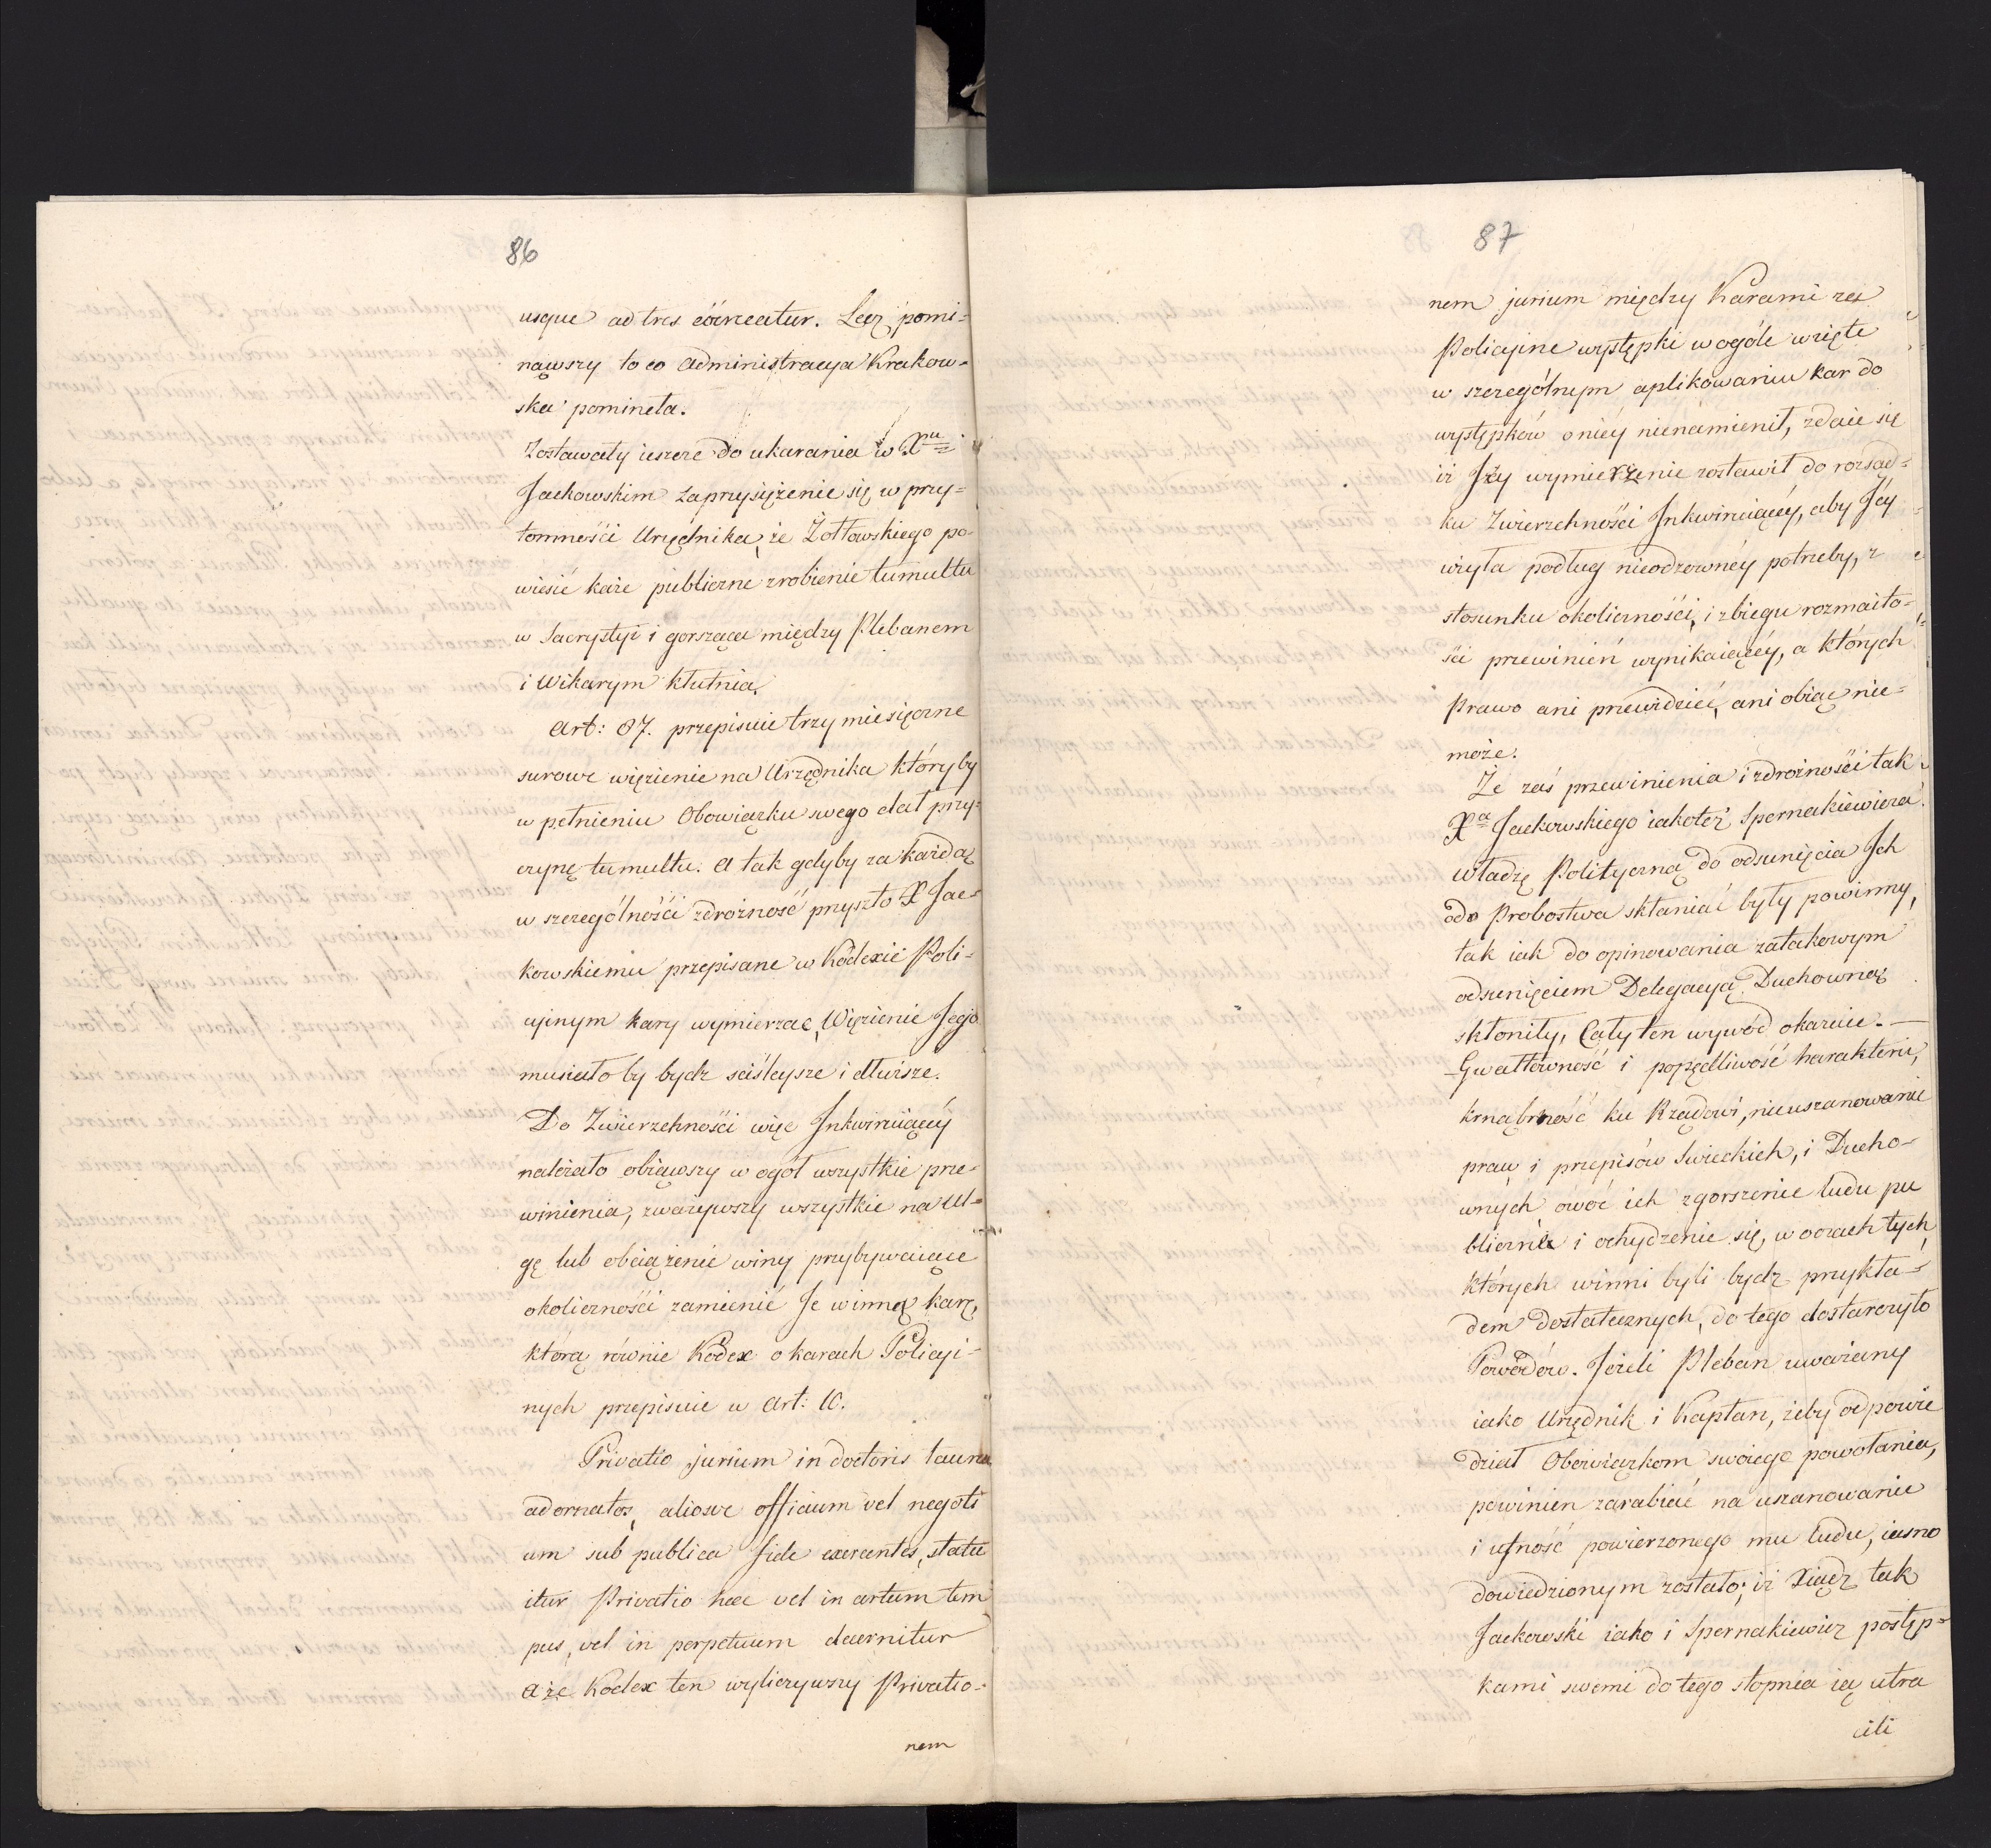 86
usque ad tres coerceatur. Lecz pomi-
nąwszy to co Administracya Krakow-
ska pomineła.
Zostawały ieszcze do ukarania w Xu
Jackowskim zaprzysiężenie się w przy-
tomności Urzędnika, że Żołtowskiego po-
wiesić każe publiczne zrobienie tumultu
w Sacrystyi i gorsząca między Plebanem
i Wikarym kłutnia.
Art: 87. przepisuie trzy miesięczne
surowe więzienie na Urzędnika któryby
w pełnieniu Obowiązku swego dał przy-
czynę tumultu. A tak gdyby za każdą
w szczególności zdrożność przyszło X Jac-
kowskiemu przepisane w Kodexie Poli-
cyinym kary wymierzać, Więzienie Jego
musiało by bydz ściśleysze i dłuższe.
Do Zwierzchności więc Inkwiruiącéy
należało obiąwszy w ogół wszystkie prze-
winienia, zważywszy wszystkie na Ul-
gę lub obciążenie winy przybywaiące
okoliczności zamienić Je w inną karę,
którą równie Kodex o karach Policyi-
nych przepisuie w Art: 10.
Privatio jurium in doctoris laurea
adornatos, aliosve officium vel negoti
um sub publica fide exercentes, statu
itur Privatio haec vel in certum tem
pus, vel in perpetuum decernitur
a że Kodex ten wyliczywszy Privatio-
nem
87
nem jurium między Karami za
Policyine występki w ogóle wzięte
w szczególnym aplikowaniu kar do
występków o niéy nienamienił, zdaie się
iż Jéy wymierzenie zostawił do rozsąd-
ku Zwierzchności Inkwiruiącéy, aby Jéy
użyła podług nieodzownéy potrzeby, z
stosunku okoliczności, i zbiegu rozmaito-
ści przewinień wynikaiącéy, a których
Prawo ani przewidzieć, ani obiąc nie-
może.
Że zaś przewinienia i zdrożności tak
Xa Jackowskiego iakoteż Spernakiewicza
władzę Polityczną do odsunięcia Ich
odo Probostwa skłaniać były powinny,
tak iak do opinowania zatakowym
odsunięciem Delegacyą Duchowną
skłoniły, Cały ten wywód okazuie. —
Gwałtowność i popędliwość harakteru,
krnąbrność ku Rządowi, nieuszanowanie
praw i przepisów Swieckich, i Ducho-
wnych owoc ich zgorszenie ludu pu
blicznie i ochydzenie się, w oczach tych,
których winni byli bydz przykła-
dem dostatecznych, do tego dostarczyło
Powodów. Jeżeli Pleban uważany
iako Urzędnik i Kapłan, żeby odpowie
dział Obowiązkom swoiego powołania,
powinien zarabiać na uszanowanie
i ufność powierzonego mu ludu, iasno
dowiedzionym zostało; iż Xiądz tak
Jackowski iako i Spernakiewicz postęp-
kami swemi do tego stopnia ią utra
cili